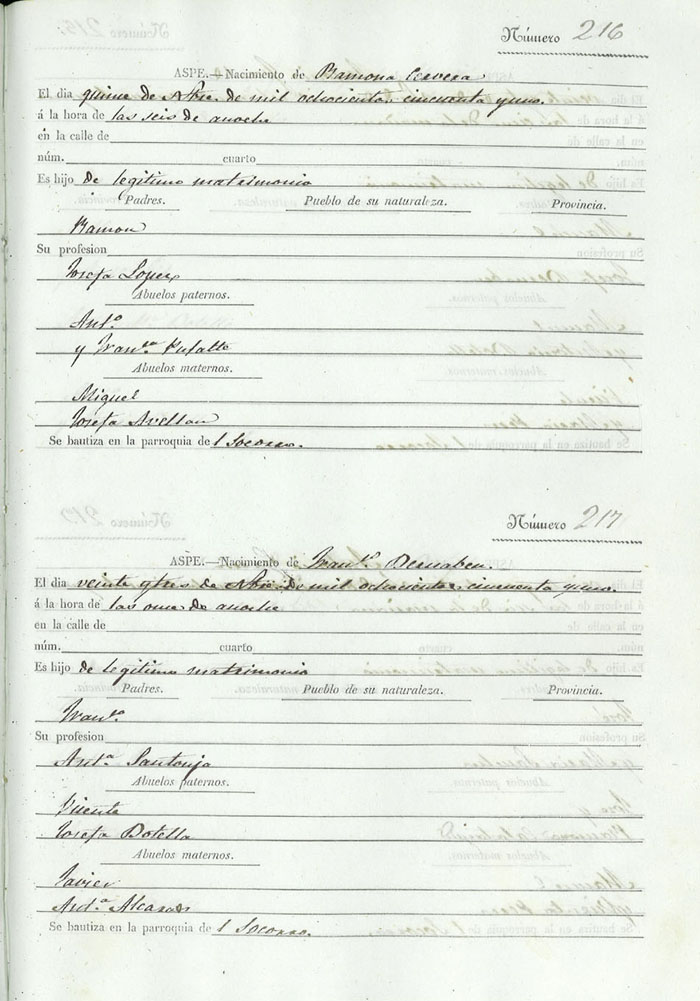 Número 216
ASPE.—Nacimiento de Ramona Cervera
El dia quince de Nbre. de mil ochocientos cincuenta y uno.
á la hora de las seis de anoche
en la calle de
núm. cuarto
Es hijo de legitimo matrimonio
Padres. Pueblo de su naturaleza. Provincia.
Ramon
Su profesion
Josefa Lopez
Abuelos paternos.
Antº
y Franca Pujalte
Abuelos maternos.
Miguel
Josefa Avellan
Se bautiza en la parroquia de l Socorro.
Número 217
ASPE.—Nacimiento de Franco Bernabeu
El dia veinte y tres de Nbre. de mil ochocientos cincuenta y uno.
á la hora de las once de anoche
en la calle de
núm. cuarto
Es hijo de legitimo matrimonio
Padres. Pueblo de su naturaleza. Provincia.
Franco
Su profesion
Antª Santonja
Abuelos paternos.
Vicente
Josefa Botella
Abuelos maternos.
Javier
Antª Alcaras
Se bautiza en la parroquia de l Socorro.